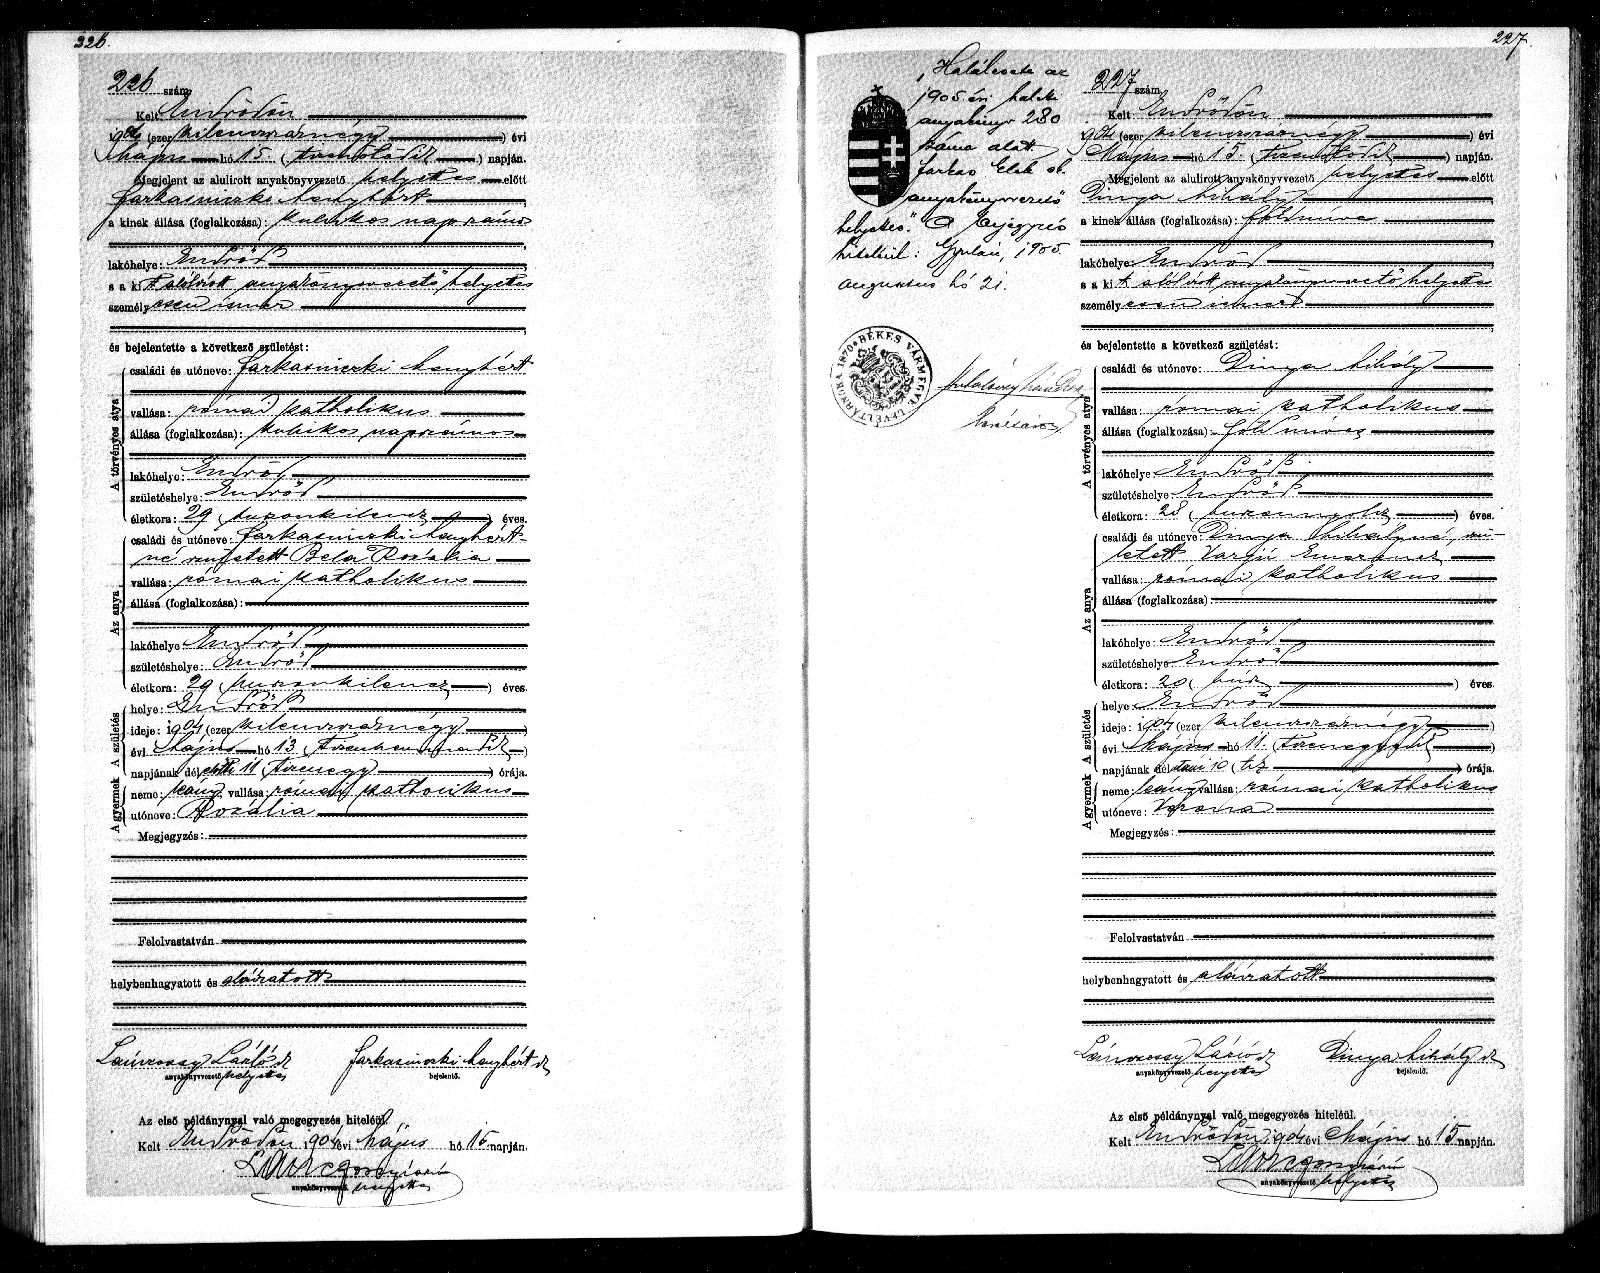 226.
226 szám.
Kelt Endrődön
1904 (ezer kilenczszáznégy) évi
Május hó 15 (tizenötödik) napján.
Megjelent az alulirott anyakönyvvezető helyettes előtt
Farkasinszki
a kinek állása (foglalkozása): kubikos napszámos
lakóhelye: Endrőd
s a kit alólírott anyakönyvvezető helyettes
személyesen ismer
és bejelentette a következő születést:
A törvényes atya
családi és utóneve: Farkasinszki
vallása: római katholikus
állása (foglalkozása): kubikos napszámos
lakóhelye: Endrőd
születéshelye: Endrőd
életkora: 29 (huszonkilencz) éves.
Az anya
családi és utóneve: Farkasinszki
né született Bela Rozália
vallása: római katholikus
állása (foglalkozása):
lakóhelye: Endrőd
születéshelye: Endrőd
életkora: 29 (huszonkilencz) éves.
A születés
helye: Endrőd
ideje: 1904 (ezer kilenczszáznégy)
évi Május hó 13 (tizenharmadik)
napjának dél előtti 11 (tizenegy) órája.
A gyermek
neme: leány vallása: római katholikus
utóneve: Rozália
Megjegyzés:
Felolvastatván
helybenhagyatott és aláíratott
László
anyakönyvvezető helyettes
Farkasinszki
bejelentő.
Az első példánynyal való megegyezés hiteléül.
Kelt Endrődön 1904 évi Május hó 15 napján.
anyakönyvvezető helyettes
227.
„Halálesete az
1905 évi halotti
anyakönyv 280
száma alatt
Farkas Elek sk.
anyakönyvvezető
helyettes." A bejegyzés
hiteléül: Gyulán, 1905.
augusztus hó 21.
BÉKÉS VÁRMEGYE LEVÉLTÁRNOKA 1870
227 szám.
Kelt Endrődön
1904 (ezer kilenczszáznégy) évi
Május hó 15 (tizenötödik) napján.
Megjelent az alulirott anyakönyvvezető helyettes előtt
Dinya Mihály
a kinek állása (foglalkozása): földműves
lakóhelye: Endrőd
s a kit alólírott anyakönyvvezető helyettes
személyesen ismer
és bejelentette a következő születést:
A törvényes atya
családi és utóneve: Dinya Mihály
vallása: római katholikus
állása (foglalkozása): földműves
lakóhelye: Endrőd
születéshelye: Endrőd
életkora: 28 (huszonnyolcz) éves.
Az anya
családi és utóneve: Dinya Mihályné, szü-
letett Varjú Emerencz
vallása: római katholikus
állása (foglalkozása):
lakóhelye: Endrőd
születéshelye: Endrőd
életkora: 20 (húsz) éves.
A születés
helye: Endrőd
ideje: 1904 (ezer kilenczszáznégy)
évi Május hó 11 (tizenegyedik)
napjának dél utáni 10 (tíz) órája.
A gyermek
neme: leány vallása: római katholikus
utóneve: Verona
Megjegyzés:
Felolvastatván
helybenhagyatott és aláíratott
László
anyakönyvvezető helyettes
Dinya Mihály
bejelentő.
Az első példánynyal való megegyezés hiteléül.
Kelt Endrődön 1904 évi Május hó 15 napján.
anyakönyvvezető helyettes